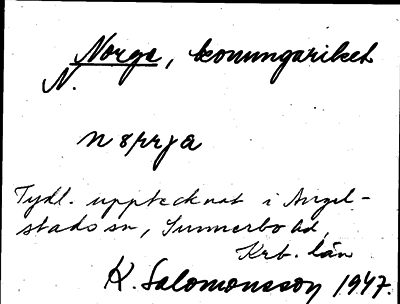 Norge, konungariket
N.
nørrja
Tydl. upptecknat i Angel-
stads sn, Sunnerbo hd,
Krb. län
K. Salomonsson 1947.